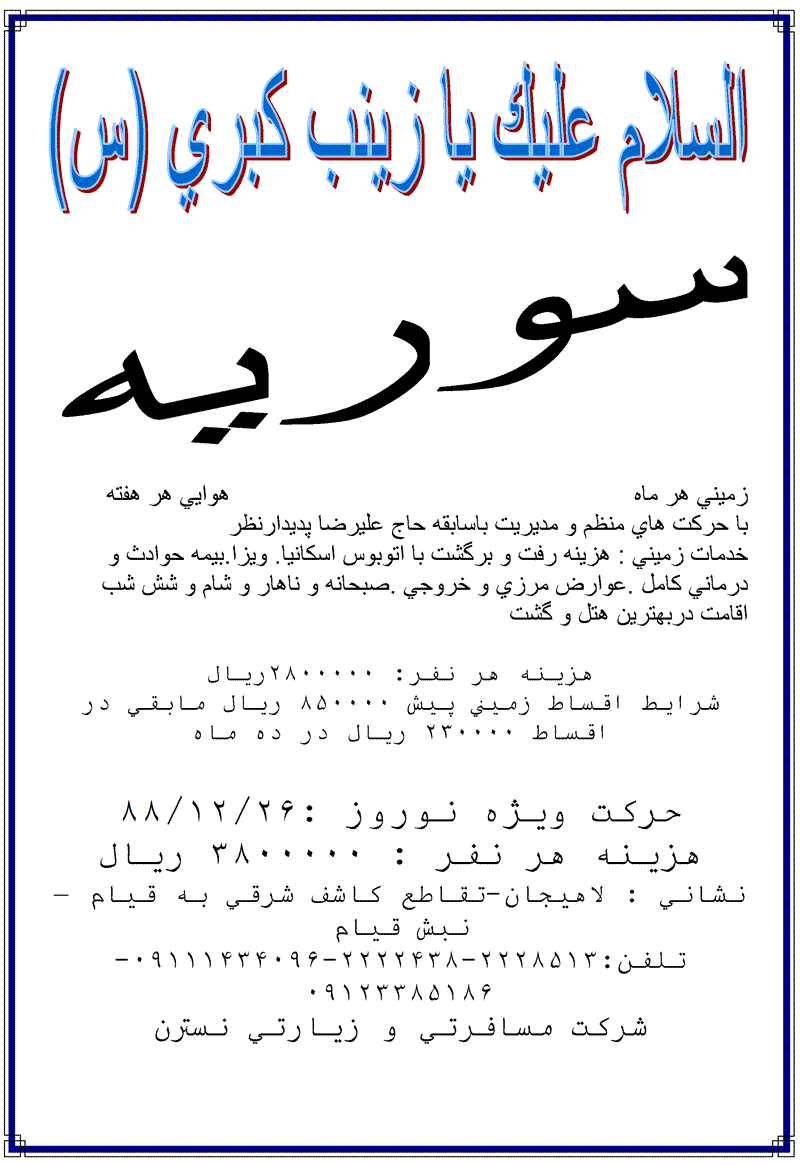 السلام عليك يا زينب كبري (س)
سوريه
زميني هر ماه هوايي هر هفته
با حركت هاي منظم و مديريت باسابقه حاج عليرضا پديدارنظر
خدمات زميني : هزينه رفت و برگشت با اتوبوس اسكانيا. ويزا.بيمه حوادث و
درماني كامل .عوارض مرزي و خروجي .صبحانه و ناهار و شام و شش شب
اقامت دربهترين هتل و گشت
هزينه هر نفر: ۲۸۰۰۰۰۰ريال
شرايط اقساط زميني پيش ۸۵۰۰۰۰ ريال مابقي در
اقساط ۲۳۰۰۰۰ ريال در ده ماه
حركت ويژه نوروز :۸۸/۱۲/۲۶
هزينه هر نفر : ۳۸۰۰۰۰۰ ريال
نشاني : لاهيجان-تقاطع كاشف شرقي به قيام –
نبش قيام
تلفن:۲۲۲۸۵۱۳-۲۲۲۲۴۳۸-۰۹۱۱۱۴۳۴۰۹۶-
۰۹۱۲۳۳۸۵۱۸۶
شركت مسافرتي و زيارتي نسترن